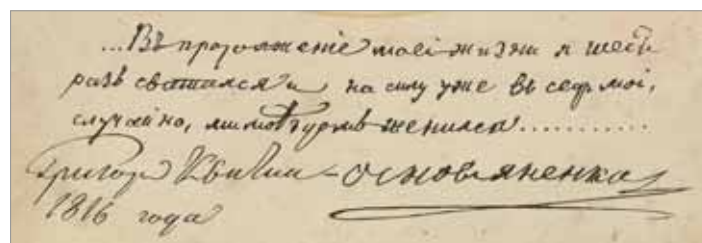 ...Въ продолженіе моей жизни я шесть
разъ сватался и на силу уже въ седьмой,
случайно, женился...........
Григорій Квитка-Основяненко
1816 года